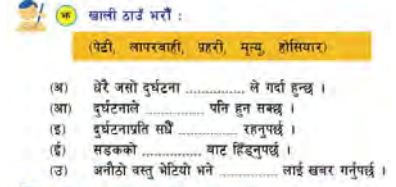 झ खाली ठाउँ भरौँ :
(पेटी, लापरवाही, प्रहरी, मृत्यु, होसियार)
(अ) धेरै जसो दुर्घटना .............. ले गर्दा हुन्छ ।
(आ) दुर्घटनाले .............. पनि हुन सक्छ ।
(इ) दुर्घटनाप्रति सधैँ .............. रहनुपर्छ ।
(ई) सडकको .............. बाट हिँड्नुपर्छ ।
(उ) अनौठो वस्तु भेटियो भने .............. लाई खबर गर्नुपर्छ ।